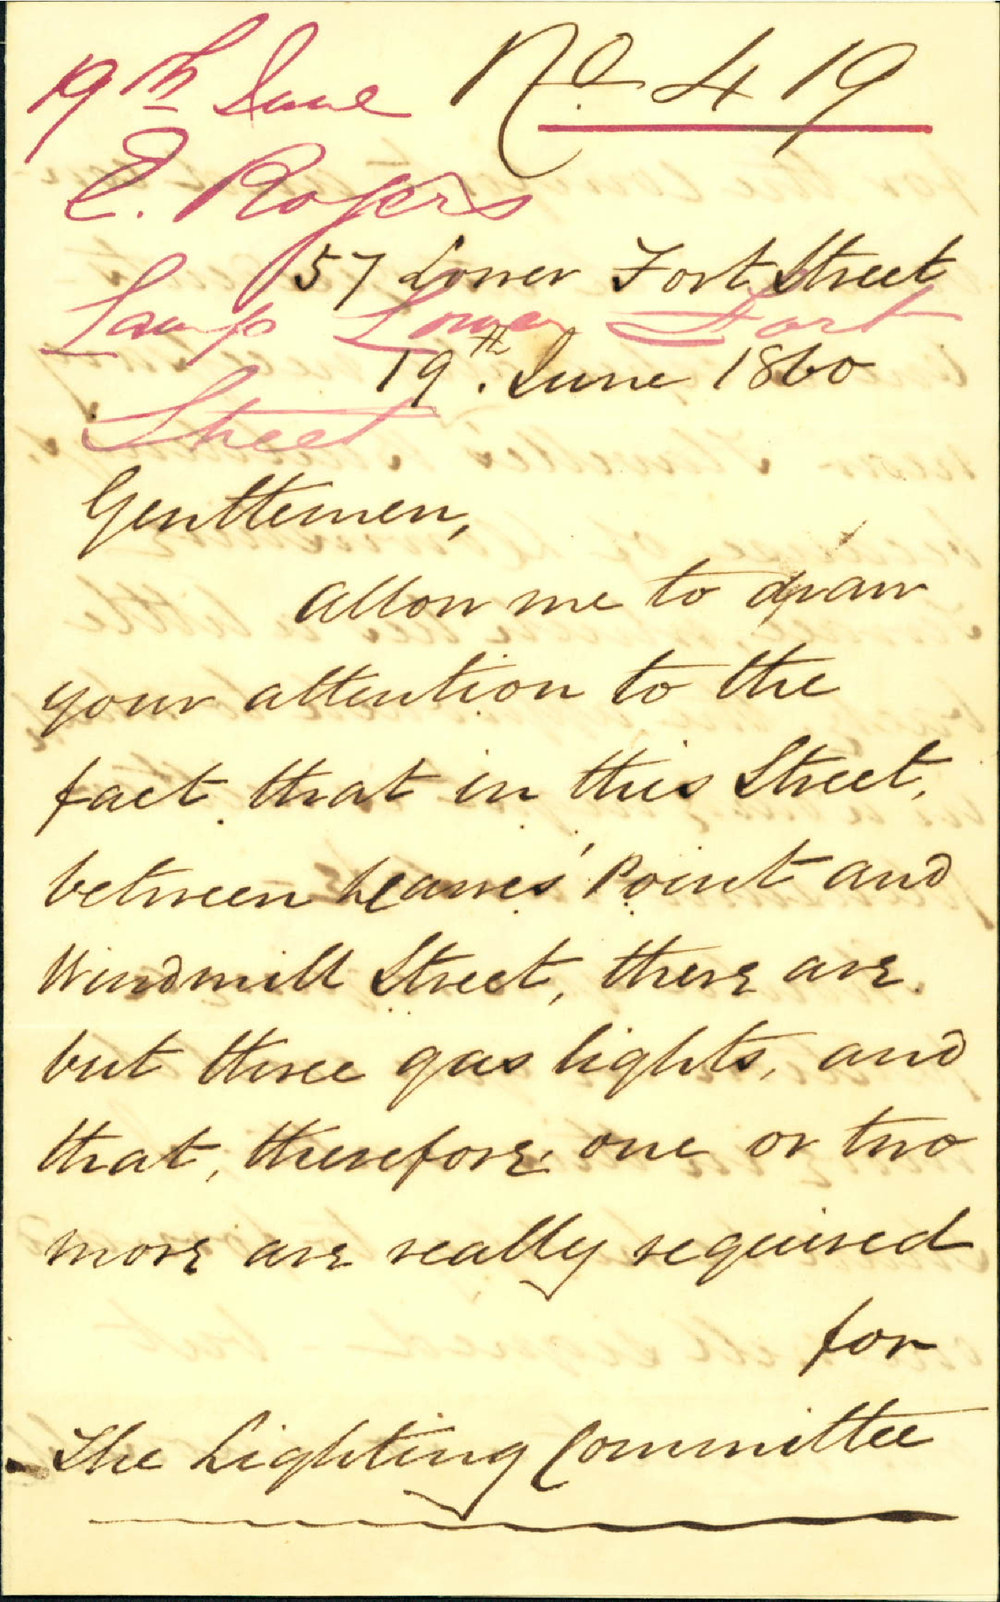 19th June No. 419
E. Rogers
57 Lower Fort Street
Lamp Lower Fort
19th. June 1860
Street
Gentlemen,
Allow me to draw
your attention to the
fact that in this Street,
between Dawes' Point and
Windmill Street, there are
but three gas lights, and
that, therefore, one or two
more are really required
for
The Lighting Committee